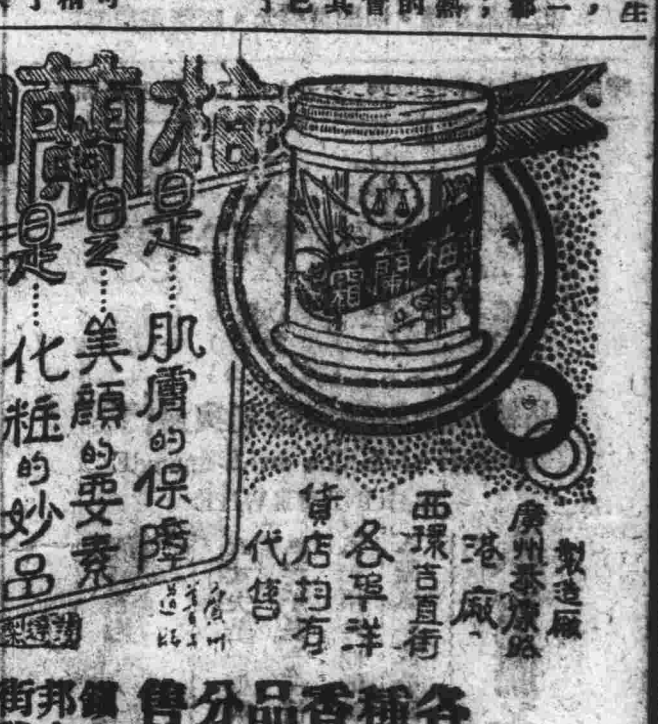 梅蘭
霜蘭梅
是……肌膚的保障
是……美顏的要素
是……化粧的妙品
製造廠
廣州泰康路
港廠
西環吉直街
各埠洋
貨店均有
代售
各種香品分售